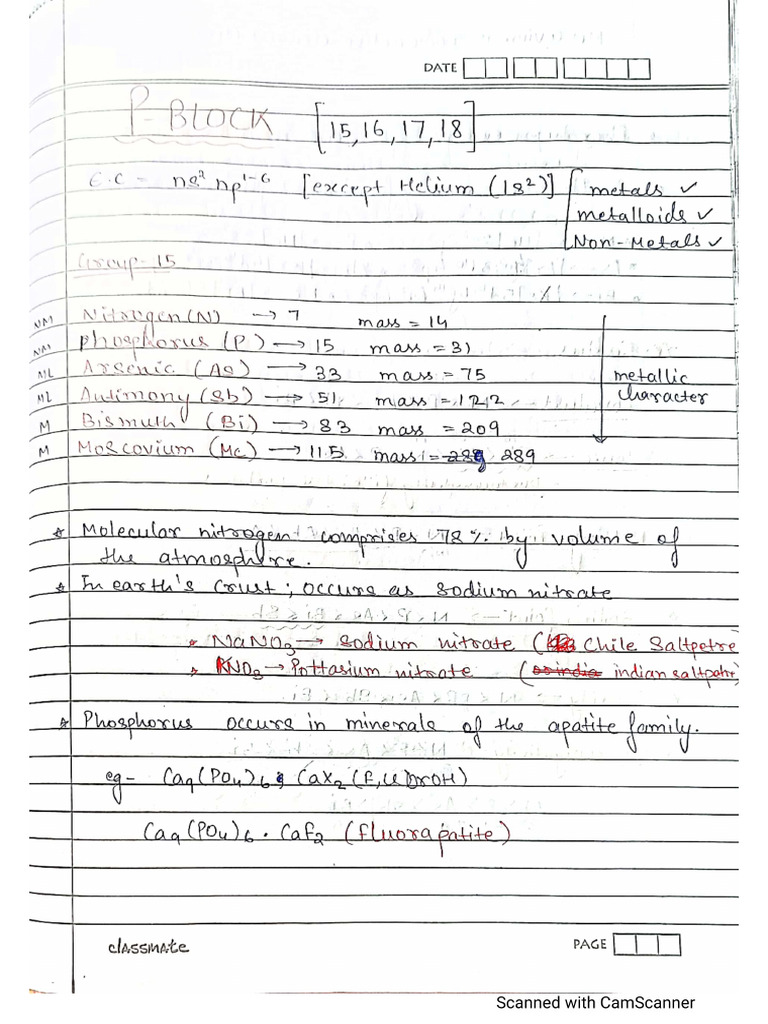 DATE
P-BLOCK [15,16,17,18]
E.C - ns² np¹⁻⁶ [except Helium (1s²)] metals ✓
metalloids ✓
Non Metals ✓
Group-15
NM Nitrogen (N) → 7 mass = 14
NM Phosphorus (P) → 15 mass = 31
ML Arsenic (As) → 33 mass = 75 metallic
ML Antimony (Sb) → 51 mass = 122 character
M Bismuth (Bi) → 83 mass = 209
M Moscovium (Mc) → 115 mass = 289
* Molecular nitrogen comprises 78% by volume of
the atmosphere.
* In earth's crust; occurs as sodium nitrate
* NaNO₃ → Sodium nitrate (Chile Saltpetre
* KNO₃ → Pottasium nitrate (indian saltpetre)
* Phosphorus occurs in minerals of the apatite family.
eg- Ca₉(PO₄)₆; CaX₂ (F, Cl OrOH)
Ca₉(PO₄)₆ . CaF₂ (fluorapatite)
classmate PAGE
Scanned with CamScanner